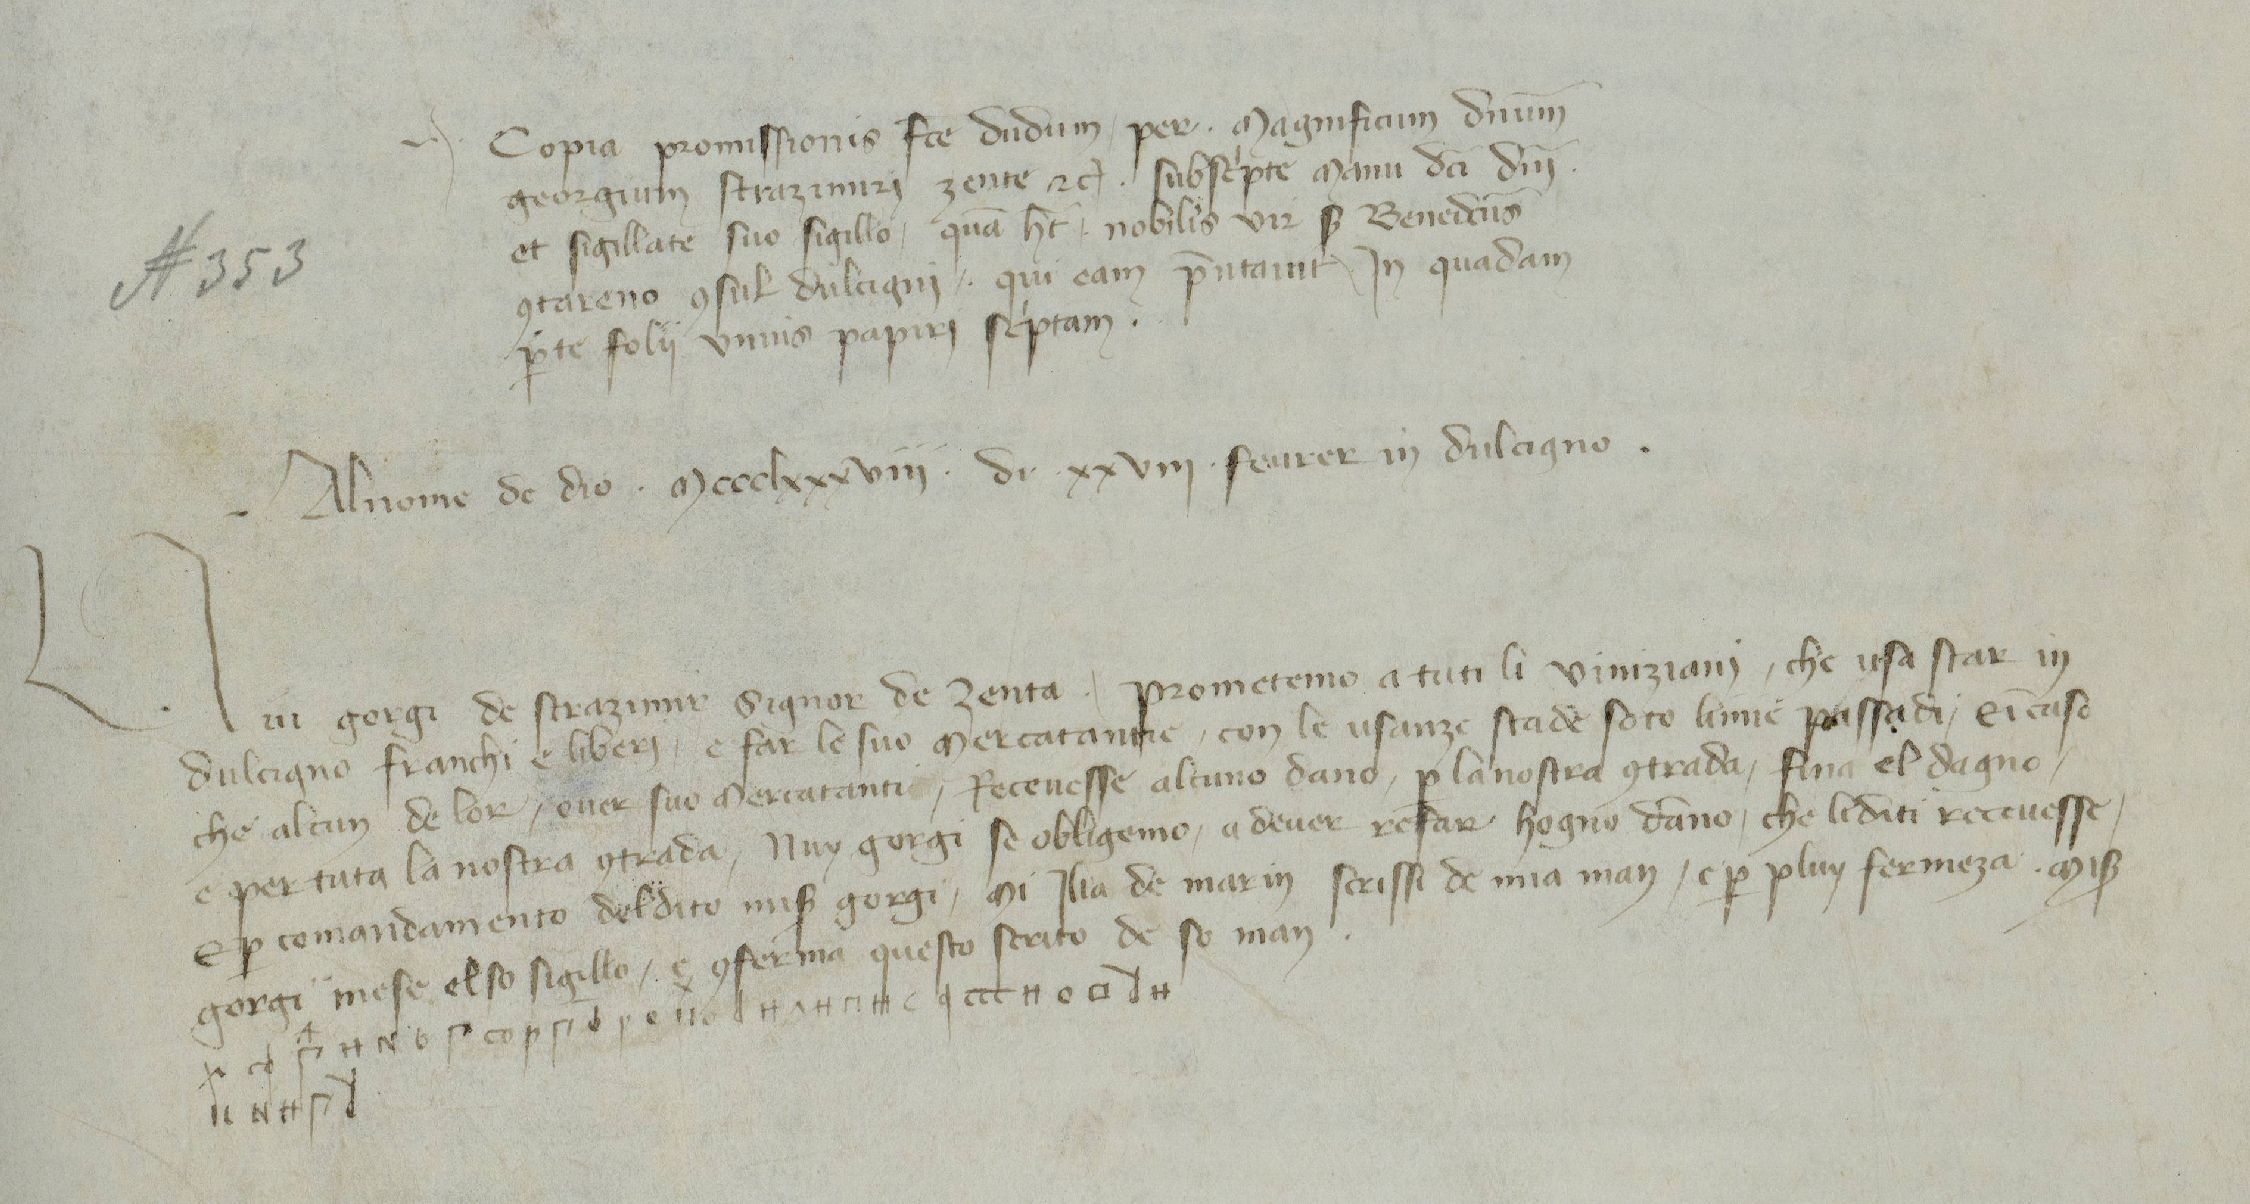 Copia promissionis fc̄e dudum, per. Magnificum dnūm
georgium strazimirj zente ⁊c̄. subscⁱpte manu dc̄i dn̄i.
et sigillate suo sigillo, quā ht̄. nobilis vir s̄ Benedcūs
ꝯtareno ꝯsul dulcignj. qui eam pn̄tauit In quadam
ꝑte folij vnius papirj scⁱptam.
# 353
Al nome de dio. Mccclxxxviii. di. xxviii. feurer in dulcigno.
Nui gorgi de strazimir Signor de Zenta. prometemo a tuti li viniziani, che usa star in
dulcigno franchi e liberi, e far le suo mercatantie, con le usanze stade soto limie passadi, E ī caso
che alcun de lor, ouer suo mercatanti, Receuesse alcuno dano, ꝑ la nostra ꝯtrada, fina el dagno,
e per tuta la nostra ꝯtrada, Nuy gorgi se obligemo, a deuer refar hogno dāno, che li diti receuesse,
E ꝑ comandamento del dito mis̄ gorgi, Mi Ilia de marin scrissi de mia man, e ꝑ pluy fermeza. Mis̄
gorgi mese el so sigillo, e ꝯferma questo scrito de so man.